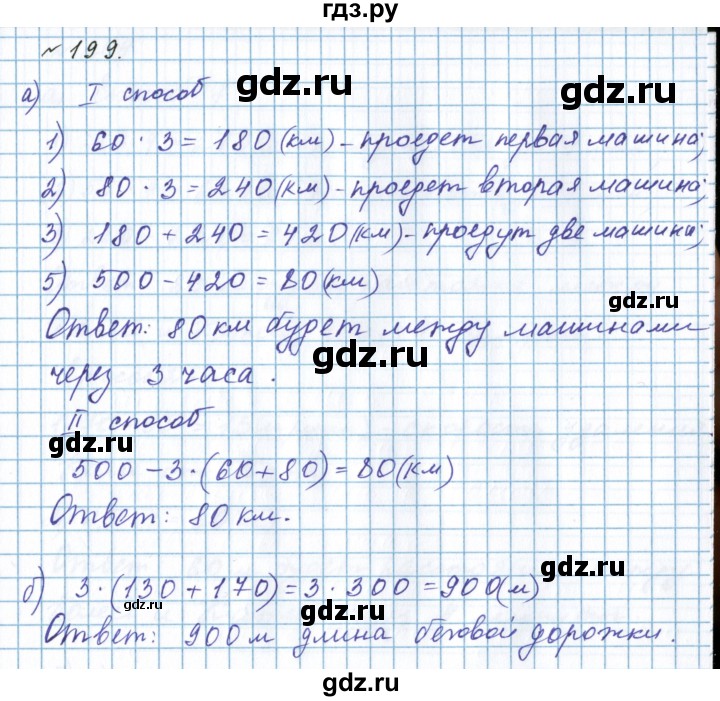 гдз.ру
№ 199.
gdz.ru
gdz.ru
а) I способ
1) 60 · 3 = 180 (км) - проедет первая машина;
2) 80 · 3 = 240 (км) - проедет вторая машина;
gdz.ru
gdz.ru
3) 180 + 240 = 420 (км) - проедут две машины;
5) 500 - 420 = 80 (км)
gdz.ru
Ответ: 80 км будет между машинами
gdz.ru
через 3 часа.
II способ
gdz.ru
gdz.ru
500 - 3 · (60 + 80) = 80 (км)
Ответ: 80 км.
gdz.ru
gdz.ru
б) 3 · (130 + 170) = 3 · 300 = 900 (м)
gdz.ru
gdz.ru
Ответ: 900 м длина беговой дорожки.
gdz.ru
gdz.ru